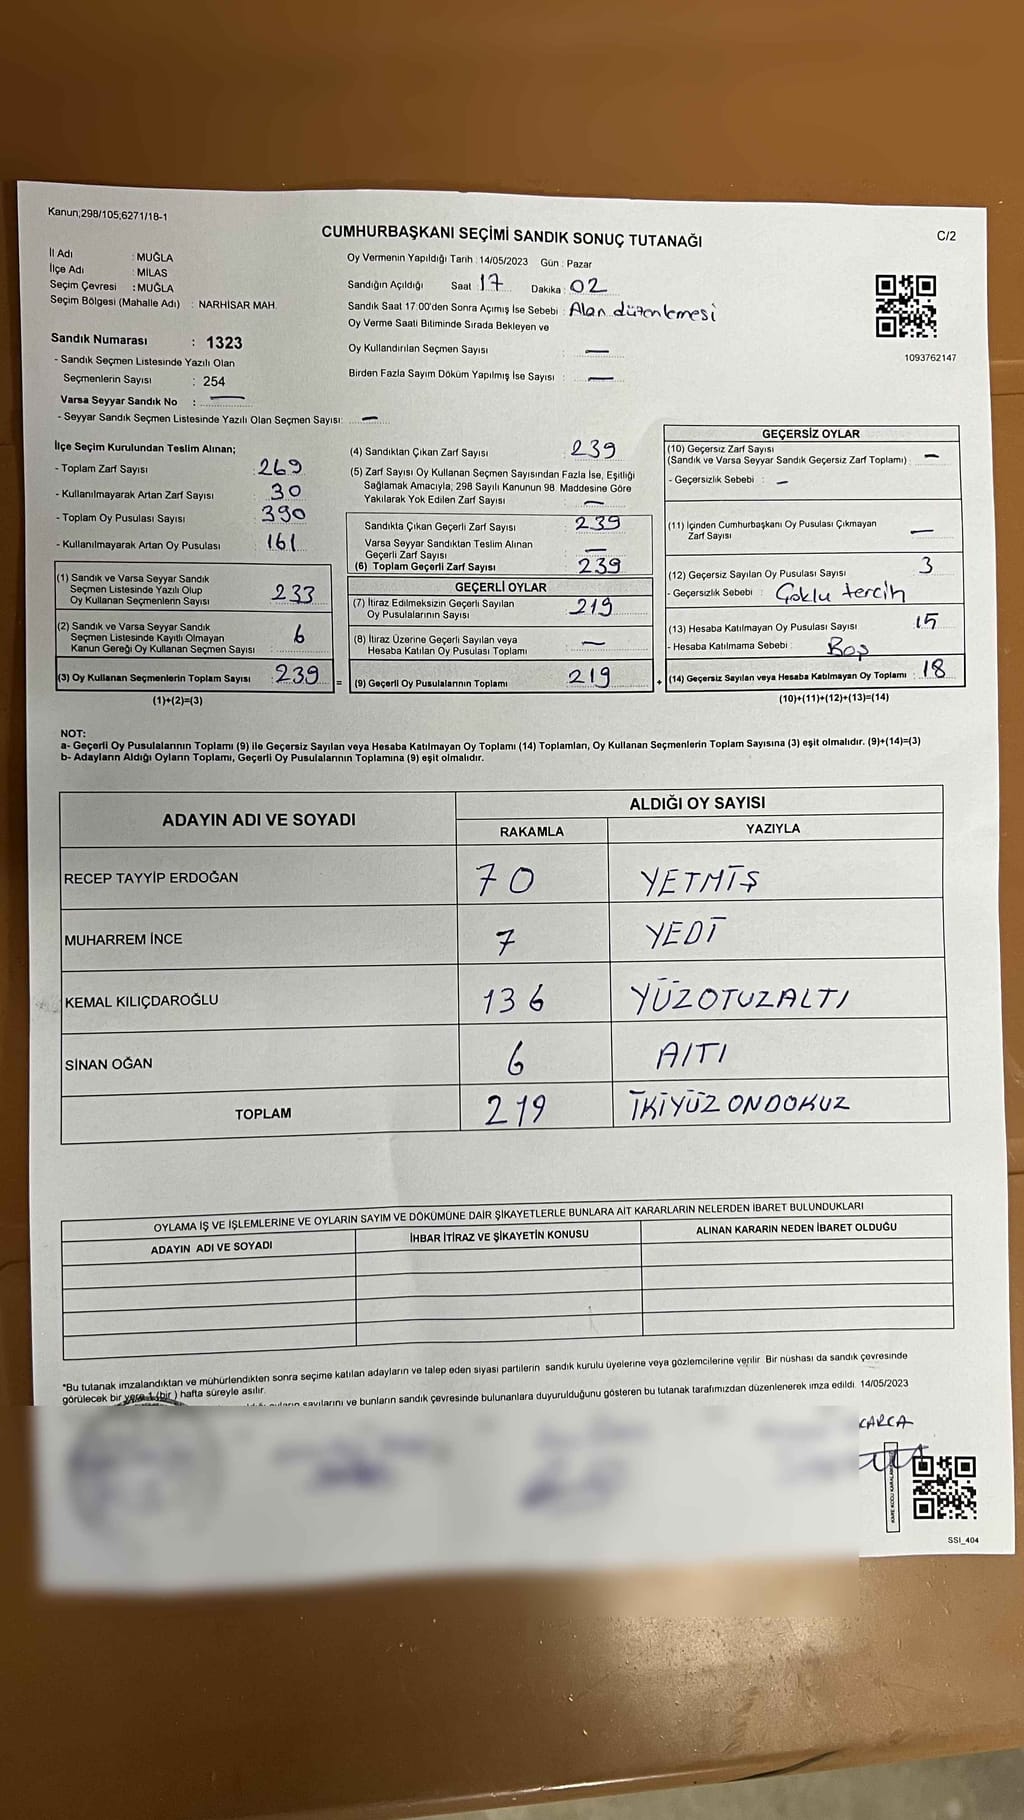 Kanun;298/105;6271/18-1
CUMHURBAŞKANI SEÇİMİ SANDIK SONUÇ TUTANAĞI
C/2
İl Adı : MUĞLA
İlçe Adı : MİLAS
Seçim Çevresi : MUĞLA
Seçim Bölgesi (Mahalle Adı) : NARHİSAR MAH.
Sandık Numarası : 1323
- Sandık Seçmen Listesinde Yazılı Olan
Seçmenlerin Sayısı : 254
Varsa Seyyar Sandık No : —
- Seyyar Sandık Seçmen Listesinde Yazılı Olan Seçmen Sayısı: —
Oy Vermenin Yapıldığı Tarih : 14/05/2023 Gün : Pazar
Sandığın Açıldığı Saat 17 Dakika : 02
Sandık Saat 17:00'den Sonra Açımış İse Sebebi : Alan düzenlemesi
Oy Verme Saati Bitiminde Sırada Bekleyen ve
Oy Kullandırılan Seçmen Sayısı : —
Birden Fazla Sayım Döküm Yapılmış İse Sayısı : —
1093762147
İlçe Seçim Kurulundan Teslim Alınan;
- Toplam Zarf Sayısı : 269
- Kullanılmayarak Artan Zarf Sayısı : 30
- Toplam Oy Pusulası Sayısı : 390
- Kullanılmayarak Artan Oy Pusulası : 161
(1) Sandık ve Varsa Seyyar Sandık
Seçmen Listesinde Yazılı Olup
Oy Kullanan Seçmenlerin Sayısı : 233
(2) Sandık ve Varsa Seyyar Sandık
Seçmen Listesinde Kayıtlı Olmayan
Kanun Gereği Oy Kullanan Seçmen Sayısı : 6
(3) Oy Kullanan Seçmenlerin Toplam Sayısı : 239
(1)+(2)=(3)
=
(4) Sandıktan Çıkan Zarf Sayısı : 239
(5) Zarf Sayısı Oy Kullanan Seçmen Sayısından Fazla İse, Eşitliği
Sağlamak Amacıyla, 298 Sayılı Kanunun 98. Maddesine Göre
Yakılarak Yok Edilen Zarf Sayısı : —
Sandıkta Çıkan Geçerli Zarf Sayısı : 239
Varsa Seyyar Sandıktan Teslim Alınan
Geçerli Zarf Sayısı : —
(6) Toplam Geçerli Zarf Sayısı : 239
GEÇERLİ OYLAR
(7) İtiraz Edilmeksizin Geçerli Sayılan
Oy Pusulalarının Sayısı : 219
(8) İtiraz Üzerine Geçerli Sayılan veya
Hesaba Katılan Oy Pusulası Toplamı : —
(9) Geçerli Oy Pusulalarının Toplamı : 219
+
GEÇERSİZ OYLAR
(10) Geçersiz Zarf Sayısı
(Sandık ve Varsa Seyyar Sandık Geçersiz Zarf Toplamı) : —
- Geçersizlik Sebebi : —
(11) İçinden Cumhurbaşkanı Oy Pusulası Çıkmayan
Zarf Sayısı : —
(12) Geçersiz Sayılan Oy Pusulası Sayısı : 3
- Geçersizlik Sebebi : Çoklu tercih
(13) Hesaba Katılmayan Oy Pusulası Sayısı : 15
- Hesaba Katılmama Sebebi : Boş
(14) Geçersiz Sayılan veya Hesaba Katılmayan Oy Toplamı : 18
(10)+(11)+(12)+(13)=(14)
NOT:
a- Geçerli Oy Pusulalarının Toplamı (9) ile Geçersiz Sayılan veya Hesaba Katılmayan Oy Toplamı (14) Toplamları, Oy Kullanan Seçmenlerin Toplam Sayısına (3) eşit olmalıdır. (9)+(14)=(3)
b- Adayların Aldığı Oyların Toplamı, Geçerli Oy Pusulalarının Toplamına (9) eşit olmalıdır.
ADAYIN ADI VE SOYADI ALDIĞI OY SAYISI
RAKAMLA YAZIYLA
RECEP TAYYİP ERDOĞAN 70 YETMİŞ
MUHARREM İNCE 7 YEDİ
KEMAL KILIÇDAROĞLU 136 YÜZOTUZALTI
SİNAN OĞAN 6 AlTI
TOPLAM 219 İKİYÜZ ONDOKUZ
OYLAMA İŞ VE İŞLEMLERİNE VE OYLARIN SAYIM VE DÖKÜMÜNE DAİR ŞİKAYETLERLE BUNLARA AİT KARARLARIN NELERDEN İBARET BULUNDUKLARI
ADAYIN ADI VE SOYADI İHBAR İTİRAZ VE ŞİKAYETİN KONUSU ALINAN KARARIN NEDEN İBARET OLDUĞU
*Bu tutanak imzalandıktan ve mühürlendikten sonra seçime katılan adayların ve talep eden siyasi partilerin sandık kurulu üyelerine veya gözlemcilerine verilir Bir nüshası da sandık çevresinde
görülecek bir yere 1 (bir ) hafta süreyle asılır.
sayılarını ve bunların sandık çevresinde bulunanlara duyurulduğunu gösteren bu tutanak tarafımızdan düzenlenerek imza edildi. 14/05/2023
KARCA
SSI_404